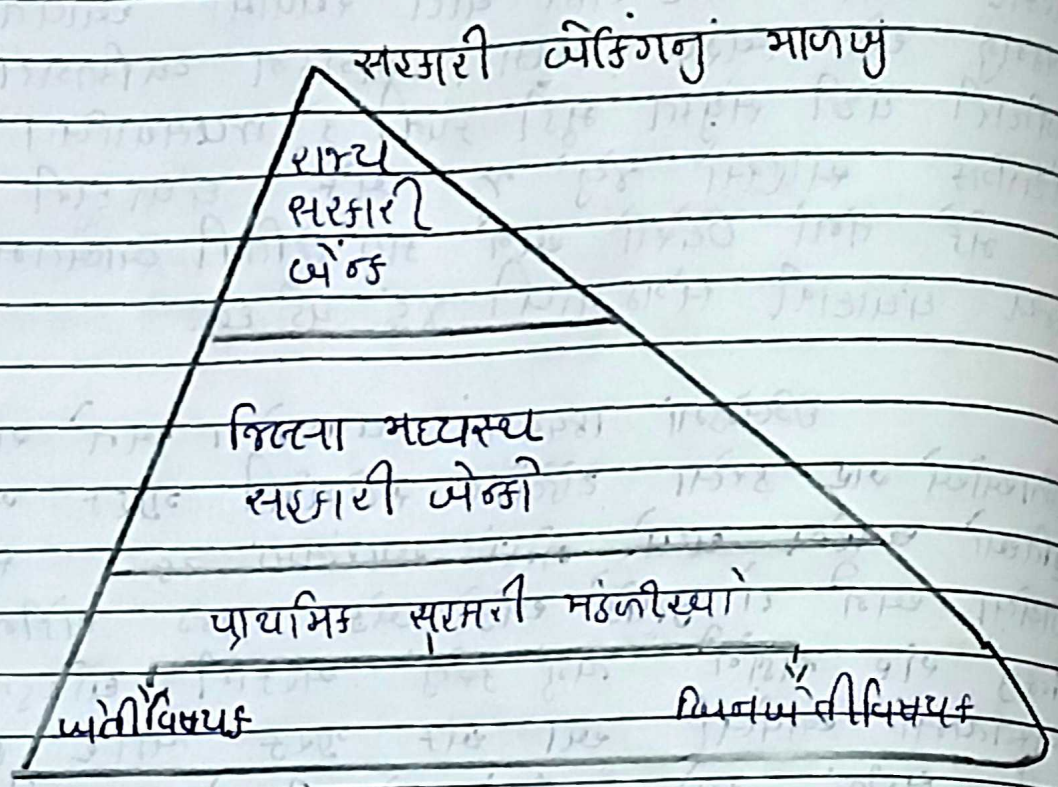 સહકારી બેંકિંગનું માળખું
રાજ્ય
સહકારી
બેંન્ક
જિલ્લા મધ્યસ્થ
સહકારી બેન્કો
પ્રાથમિક સહકારી મંડળીઓ
ખેતીવિષયક
બિનખેતીવિષયક